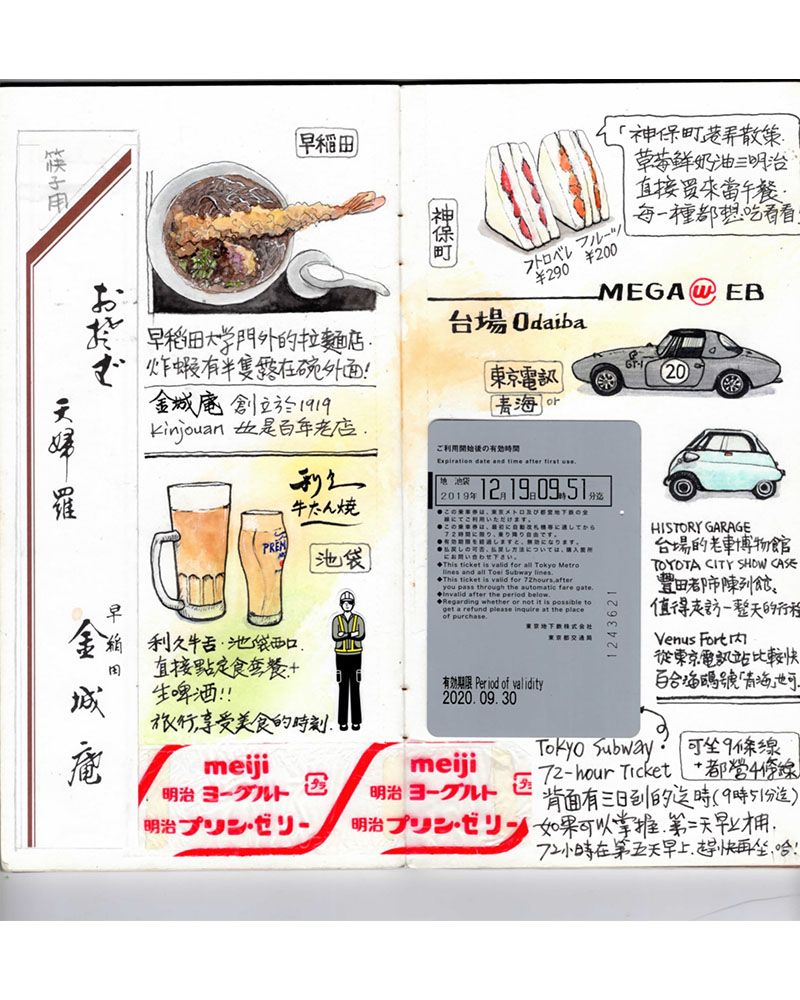 筷子用
おそば
天婦羅
早稲田
金城庵
早稲田
早稲田大学門外的拉麵店.
炸蝦有半隻露在碗外面!
金城庵 創立於1919
Kinjouan 也是百年老店.
利久
牛たん焼
池袋
PREM
利久牛舌·池袋西口.
直接點定食套餐+
生啤酒!!
旅行,享受美食的時刻.
meiji
明治 ヨーグルト
プラ
明治 プリン・ゼリー
meiji
明治 ヨーグルト
プラ
明治 プリン・ゼリー
神保町
「神保町巷弄散策.
草莓鮮奶油三明治
直接買來當午餐.
每一種都想吃看看!
フトロベレ
¥290
フルーツ
¥200
MEGA W EB
台場 Odaiba
東京電訊
青海 or
GT-1
20
ご利用開始後の有効時間
Expiration date and time after first use.
地 池袋
2019年12月19日09時51分迄
●この乗車券は、東京メトロ及び都営地下鉄の全
線にてご利用いただけます。
●この乗車券は、最初に自動改札機等に通してから
72時間に限り、乗り降り自由です。
●有効期間を経過しますと、無効になります。
●払戻しの可否、払戻し方法については、購入箇所
にお問い合わせ下さい。
●This ticket is valid for all Tokyo Metro
lines and all Toei Subway lines.
●This ticket is valid for 72hours,after
you pass through the automatic fare gate.
●Invalid after the period below.
●Regarding whether or not it is possible to
get a refund please inquire at the place
of purchase.
東京地下鉄株式会社
東京都交通局
1243621
有効期限 Period of validity
2020.09.30
HISTORY GARAGE
台場的老車博物館
TOYOTA CITY SHOW CASE
豐田都市陳列館.
值得來訪一整天的行程
Venus Fort内
從東京電訊站比較快
百合海鷗號「青海」也可.
Tokyo Subway
72-hour Ticket
可坐9條線
+都營4條線
背面有三日到的迄時(9時51分迄)
如果可以掌握.第二天早上才用.
72小時在第五天早上.趕快再坐.哈!